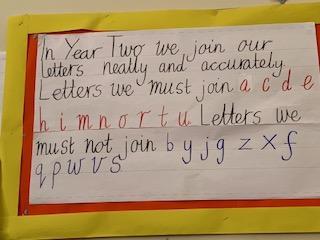 In Year Two we join our
letters neatly and accurately.
Letters we must join a c d e
h i m n o r t u Letters we
must not join b y j g z x f
q p w v s